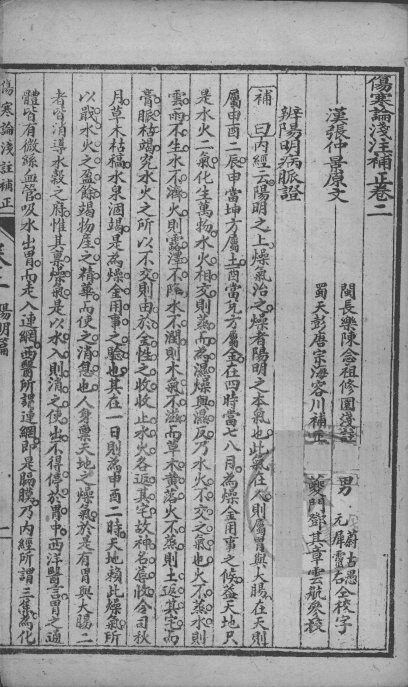 傷寒論淺注補正卷二
漢張仲景原文
閩長樂陳念祖修園淺註
蜀天彭唐宗海容川補正
男
蔚古愚
元犀靈石
仝校字
鄧其章雲航參校
辨陽明病脈證
補曰內經云陽明之上燥氣治之燥者陽明之本氣也此氣在人則屬胃與大腸在天則
屬申酉二辰申當坤方屬土酉當兌方屬金在四時當七八月為燥金用事之候蓋天地只
是水火二氣化生萬物水火相交則蒸而為濕燥與濕反乃水火不交之氣也火不蒸水則
雲雨不生水不濟火則露澤不降水不潤則木氣不滋而草木黃落火不蒸則土返其宅而
膏脈枯竭究水火之所以不交則由於金性之收收止水火各返其宅故神名蓐收令司秋
月草木枯槁水泉涸竭是為燥金用事之驗也其在一日則為申酉二時天地賴此燥氣所
以戢水火之盈餘竭物產之精華而使之消息也人身禀天地之燥氣於是有胃與大腸二
者皆消導水穀之府惟其禀燥氣是以水入則消之使出不得停於胃中西洋醫言胃之通
體皆有微絲血管吸水出胃而走入連網西醫所謂連網即是膈膜乃內經所謂三焦為化
傷寒論淺註補正
卷二 陽明篇
一